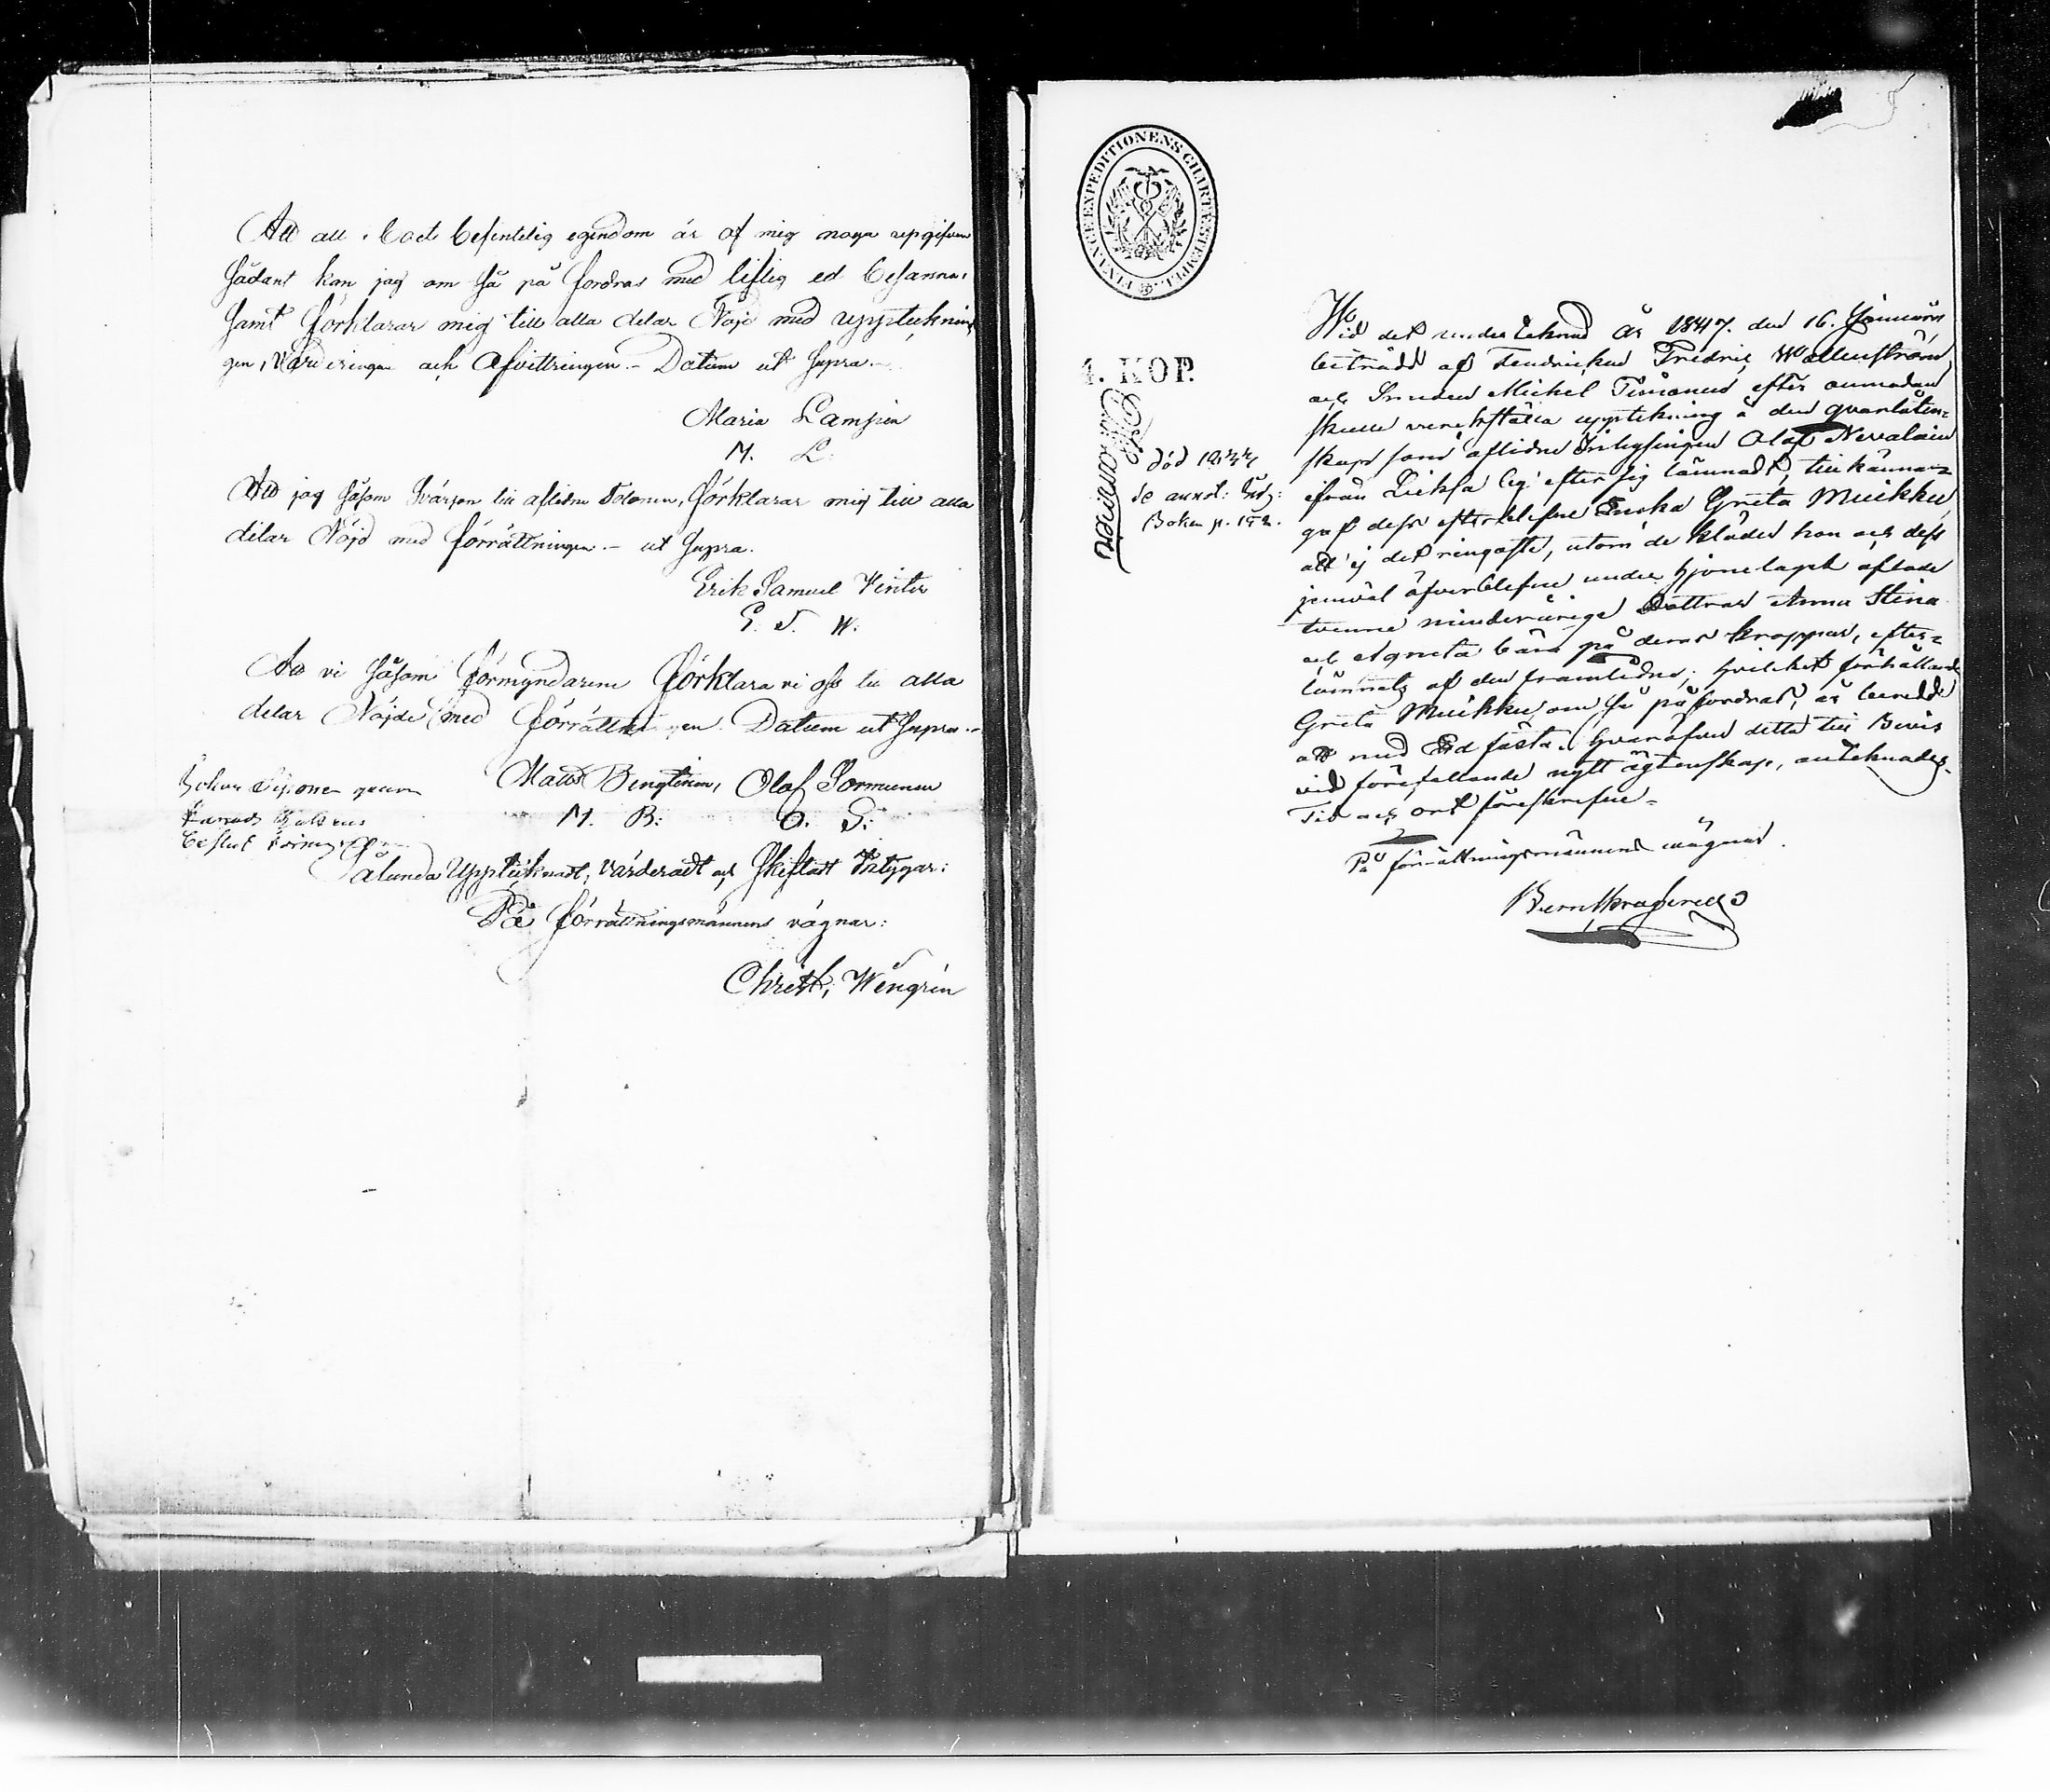 Att all i boet befintelig egendom är af mig noga uppgifven
sådant kan jag om så på fordras med liflig ed besanna,
samt förklarar mig till alla delar Nöjd med upptecknin
gen, Värderingen och Afvittringen. – Datum ut supra. –
Maria Lampien
M. L.
Att jag såsom Svärson till aflidne Tolonen, förklarar mig till alla
delar Nöjd med förrättningen. – ut supra.
Erik Samuel Vinter
E. S. W.
Att vi såsom förmyndarne förklara vi oss till alla
delar Nöjde med förrättningen. Datum ut supra. –
Matts Bengtsson, Olaf Sormunen
M. B: O. S:
Johan
Sålunda Upptecknadt, värderadt och skiftadt intygar:
På förrättningsmännens vägnar:
Christ; Wengrén
FINANCE EXPEDITIONENS CHARTÆ STEMPEL
4. KOP.
Sormunen
död 1844
se annot: Flytt:
Boken p. 182.
Wid det undertecknad År 1847. den 16. Januarii
biträdd af Landbonden Fredric Wallenström
och Bonden Michel Timonen efter anmodan
skulle verkställa uppteckning å den qvarlåten=
skap som aflidne Inhysingen Olof Nevalain
ifrån Lieksa by efter sig lämnadt, tillkänna=
gaf dess efterlefne Enka Greta Muikku,
att ej det ringaste, utom de kläder hon och dess
jemväl öfverblefne under hjonelaget aflade
tvenne minderårige Döttrar Anna Stina
och Agneta bära på deras kroppar, efter=
lämnats af den framlidne; hvilket förhållande
Greta Muikku, om så påfordras, är beredd
att med Ed fästa. Hvaröfver detta till Bevis
vid förefallande nytt ägtenskap, antecknades.
Tid och ort föreskrefne. =
På förrättningsmännens vägnar.